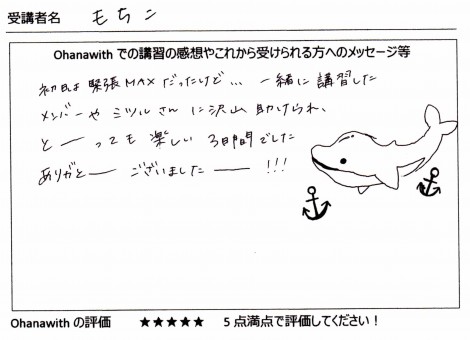 受講者名 もちこ
Ohanawith での講習の感想やこれから受けられる方へのメッセージ等
初日は緊張MAXだったけど… 一緒に講習した
メンバーや ミツルさんに沢山助けられ、
と――っても楽しい 3日間でした
ありがと―― ございました ――!!!
Ohanawith の評価 ★★★★★ 5 点満点で評価してください！